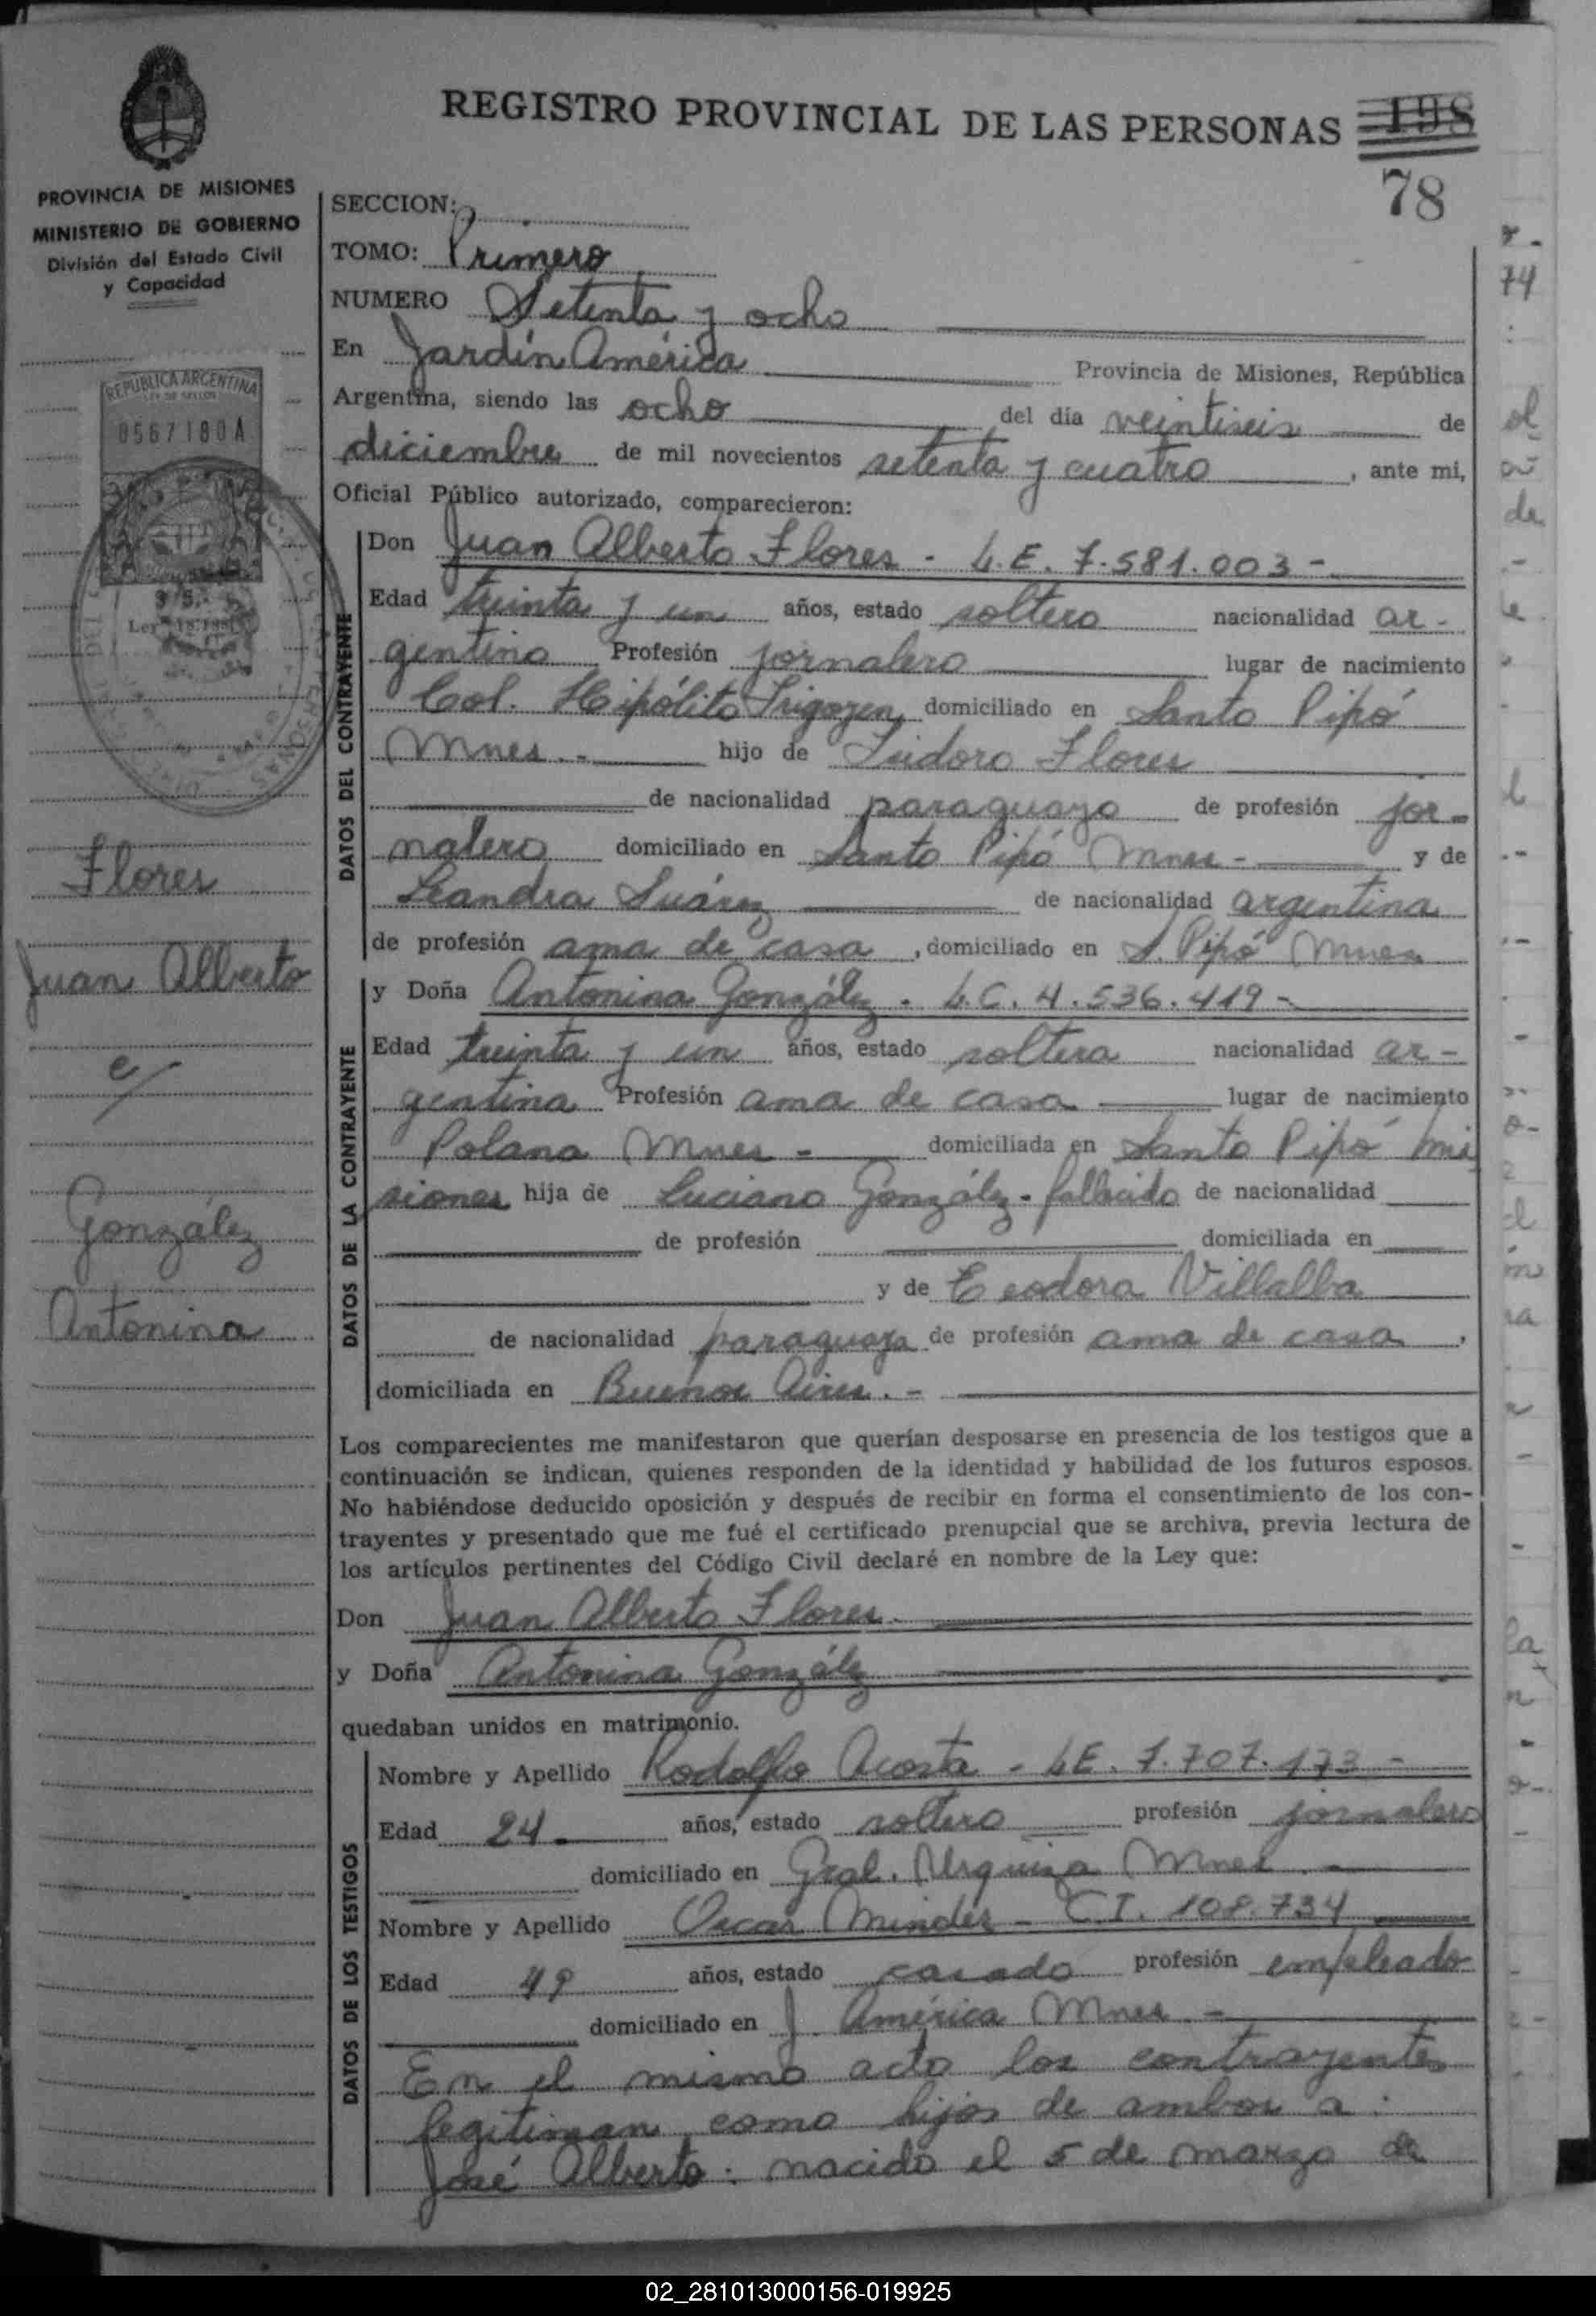 REGISTRO PROVINCIAL DE LAS PERSONAS 198
78
PROVINCIA DE MISIONES
MINISTERIO DE GOBIERNO
División del Estado Civil
y Capacidad
REPUBLICA ARGENTINA
LEY DE SELLOS
0567180A
SECCION:
TOMO: Primero
NUMERO Setenta y ocho
En Jardín América Provincia de Misiones, República
Argentina, siendo las ocho del día veintiseis de
diciembre de mil novecientos setenta y cuatro, ante mi,
Oficial Público autorizado, comparecieron:
DATOS DEL CONTRAYENTE
Don Juan Alberto Flores - L.E. 7.581.003 -
Edad treinta y un años, estado soltero nacionalidad ar-
gentino Profesión jornalero lugar de nacimiento
Col. Hipólito Irigoyen, domiciliado en Santo Pipó
Mnes. - hijo de Isidoro Flores
de nacionalidad paraguayo de profesión jor-
nalero domiciliado en Santo Pipó Mnes - y de
Leandra Suárez de nacionalidad argentina
de profesión ama de casa, domiciliado en S. Pipó Mnes
DATOS DE LA CONTRAYENTE
y Doña Antonina González - L.C. 4.536.419 -
Edad treinta y un años, estado soltera nacionalidad ar-
gentina Profesión ama de casa lugar de nacimiento
Polana Mnes - domiciliada en Santo Pipó Mi
siones hija de Luciano González - fallecido de nacionalidad
de profesión domiciliada en
y de Teodora Villalba
de nacionalidad paraguaya de profesión ama de casa,
domiciliada en Buenos Aires. -
Los comparecientes me manifestaron que querían desposarse en presencia de los testigos que a
continuación se indican, quienes responden de la identidad y habilidad de los futuros esposos.
No habiéndose deducido oposición y después de recibir en forma el consentimiento de los con-
trayentes y presentado que me fué el certificado prenupcial que se archiva, previa lectura de
los artículos pertinentes del Código Civil declaré en nombre de la Ley que:
Don Juan Alberto Flores.
y Doña Antonina González
quedaban unidos en matrimonio.
DATOS DE LOS TESTIGOS
Nombre y Apellido Rodolfo Acosta - LE. 7.707.173 -
Edad 24 años, estado soltero profesión jornalero
domiciliado en Gral. Urquiza Mnes. -
Nombre y Apellido Oscar - C.I. 108.734
Edad 49 años, estado casado profesión empleado
domiciliado en J. América Mnes. -
En el mismo acto los contrayentes
legitiman como hijos de ambos a:
José Alberto: nacido el 5 de marzo de
Flores
Juan Alberto
c/
González
Antonina
02_281013000156-019925